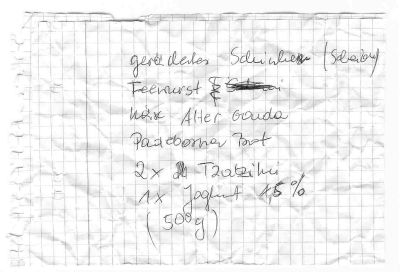 Schinken (Scheiben)
Teewurst &
Alter Gouda
Paderborner Brot
2x Tzatziki
1x Joghurt 1,5%
(500g)